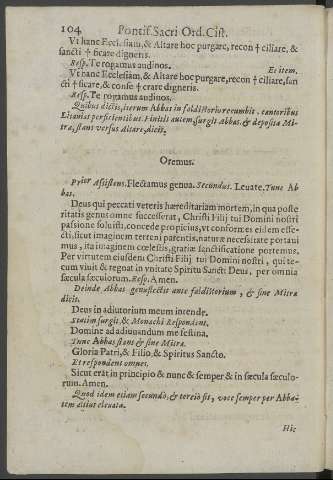 104 Pontif. Sacri Ord. Cist.
Vt hanc Ecclesiam, & Altare hoc purgare, recon † ciliare, &
sancti † ficare digneris.
Resp. Te rogamus audi nos. Et item.
Vt hanc Ecclesiam, & Altare hoc purgare, recon † ciliare, san
cti † ficare, & conse † crare digneris.
Resp. Te rogamus audi nos.
Quibus dictis, iterum Abbas in faldistoriū recumbit, cantoribus
Litanias perficientibus. Finitis autem, surgit Abbas, & deposita Mi-
tra, stans versus Altare, dicit.
Oremus.
Prior Assistens. Flectamus genua. Secundus. Leuate. Tunc Ab
bas.
Deus qui peccati veteris hæreditariam mortem, in qua poste
ritatis genus omne successerat, Christi Filij tui Domini nostri
passione soluisti, concede propicius, vt conformes eidem effe-
cti, sicut imaginem terreni parentis, naturæ necessitate portaui
mus, ita imaginem cœlestis, gratiæ sanctificatione portemus.
Per virtutem eiusdem Christi Filij tui Domini nostri, qui te-
cum viuit & regnat in vnitate Spiritu Sancti Deus, per omnia
sæcula sæculorum. Resp. Amen.
Deinde Abbas genuflectit ante faldistorium, & sine Mitra
dicit.
Deus in adiutorium meum intende.
Statim surgit, & Monachi Respondent.
Domine ad adiuuandum me festina.
Tunc Abbas stans & sine Mitra.
Gloria Patri, & Filio, & Spiritus Sancto.
Et respondent omnes.
Sicut erat in principio & nunc & semper & in sæcula sæculo-
rum. Amen.
Quod idem etiam secundò, & tertiò fit, voce semper per Abba-
tem altius eleuata.
Hic